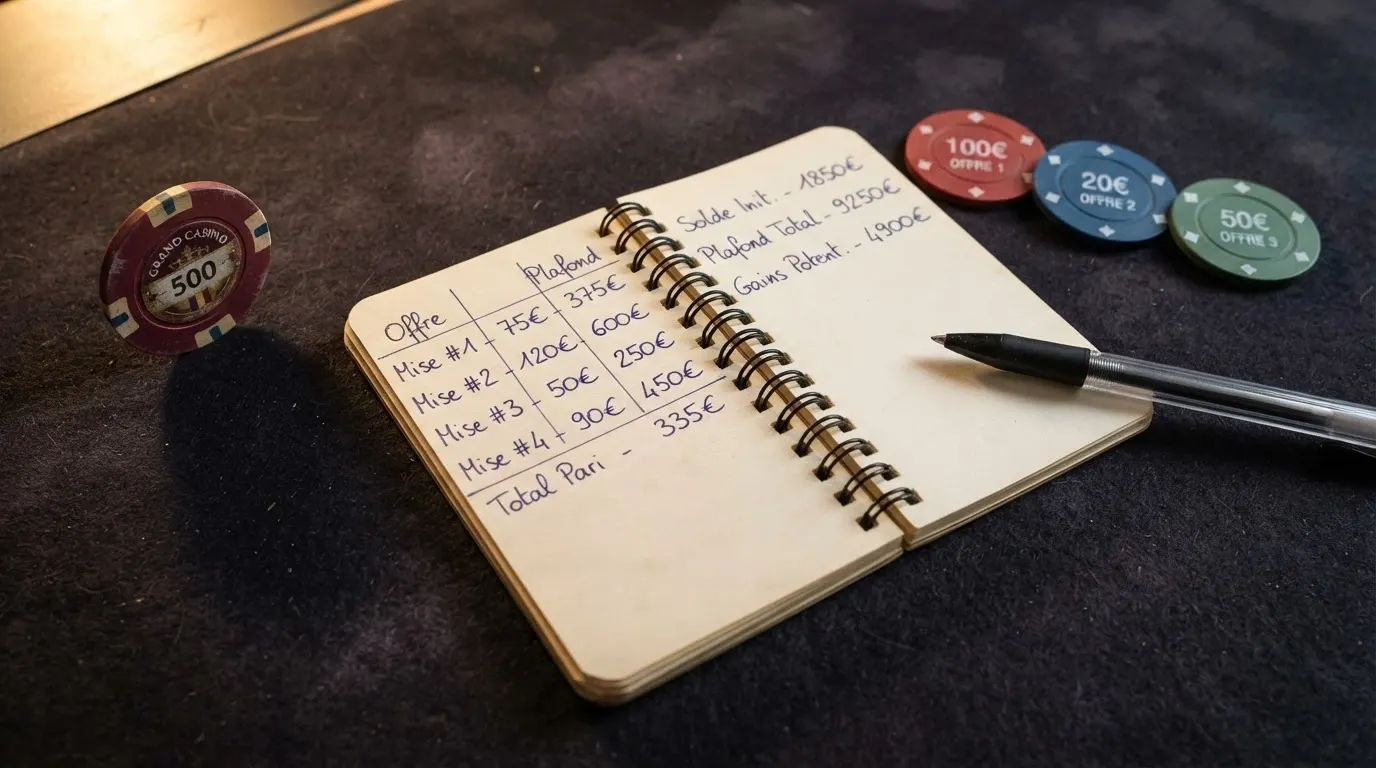 GRAND CASINO
500
Offre Plafond
Mise #1 - 75€ - 375€
Mise #2 - 120€ - 600€
Mise #3 - 50€ 250€
Mise #4 - 90€ 450€
Total Pari - 335€
Solde Init. - 1850€
Plafond Total - 9250€
Gains Potent. - 4900€
100€
OFFRE 1
20€
OFFRE 2
50€
OFFRE 3